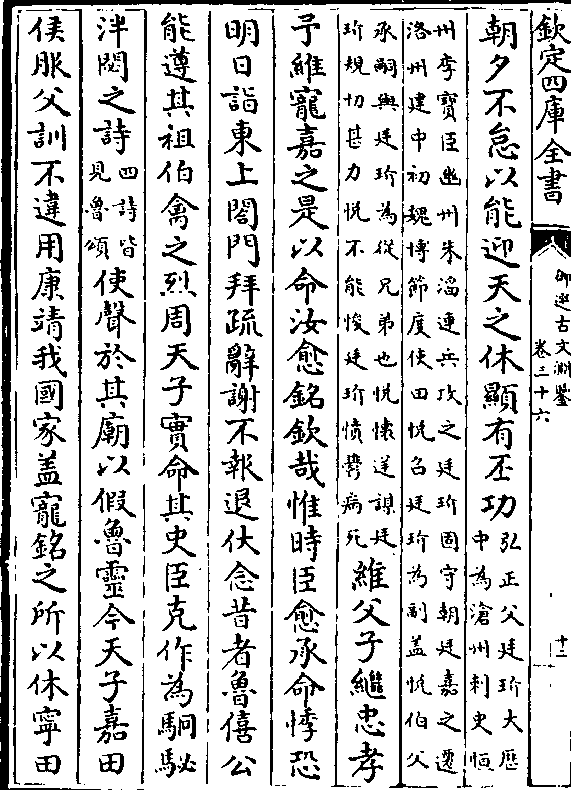 欽定四庫全書
御選古文淵鑒
卷三十六
十三
朝夕不怠以能迎天之休顯有丕功
弘正父廷玠大厯
中為滄州刺史恒
州李寶臣幽州朱滔連兵攻之廷玠固守朝廷嘉之遷
洛州建中初魏博節度使田悅召廷玠為副盖悅伯父
承嗣與廷玠為從兄弟也悅懷逆謀廷
玠規切甚力悅不能悛廷玠憤鬱病死
維父子繼忠孝
予維寵嘉之是以命汝愈銘欽哉惟時臣愈承命悸恐
明日詣東上閤門拜疏辭謝不報退伏念昔者魯僖公
能遵其祖伯禽之烈周天子實命其史臣克作為駉駜
泮閟之詩
四詩皆
見魯頌
使聲於其廟以假魯靈今天子嘉田
侯服父訓不違用康靖我國家盖寵銘之所以休寧田